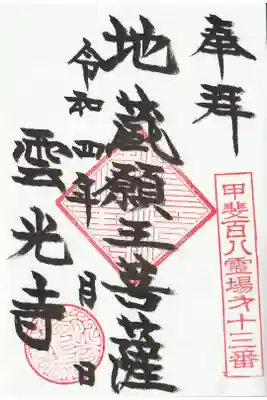 奉拝
甲斐百八霊場才十三番
地蔵願王菩薩
令和四年 月 日
雲光寺